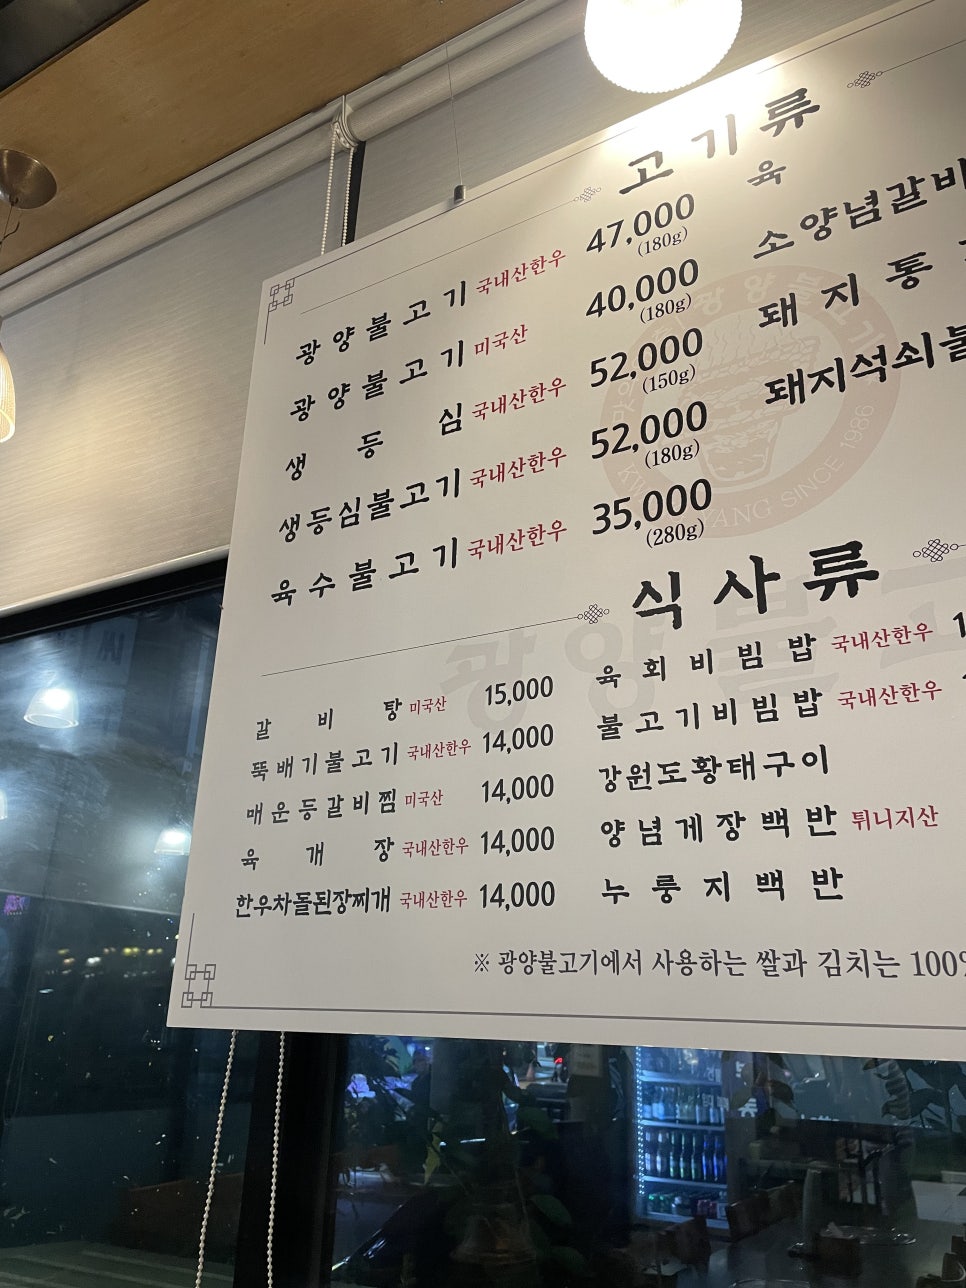 고기류
광양불고기 국내산한우 47,000
(180g)
광양불고기 미국산 40,000
(180g)
생등심 국내산한우 52,000
(150g)
생등심불고기 국내산한우 52,000
(180g)
육수불고기 국내산한우 35,000
(280g)
육
소양념갈비
돼지통
돼지석쇠불
SINCE 1986
식사류
갈비탕 미국산 15,000
뚝배기불고기 국내산한우 14,000
매운등갈비찜 미국산 14,000
육개장 국내산한우 14,000
한우차돌된장찌개 국내산한우 14,000
육회비빔밥 국내산한우
불고기비빔밥 국내산한우
강원도황태구이
양념게장백반 튀니지산
누룽지백반
※ 광양불고기에서 사용하는 쌀과 김치는 100%